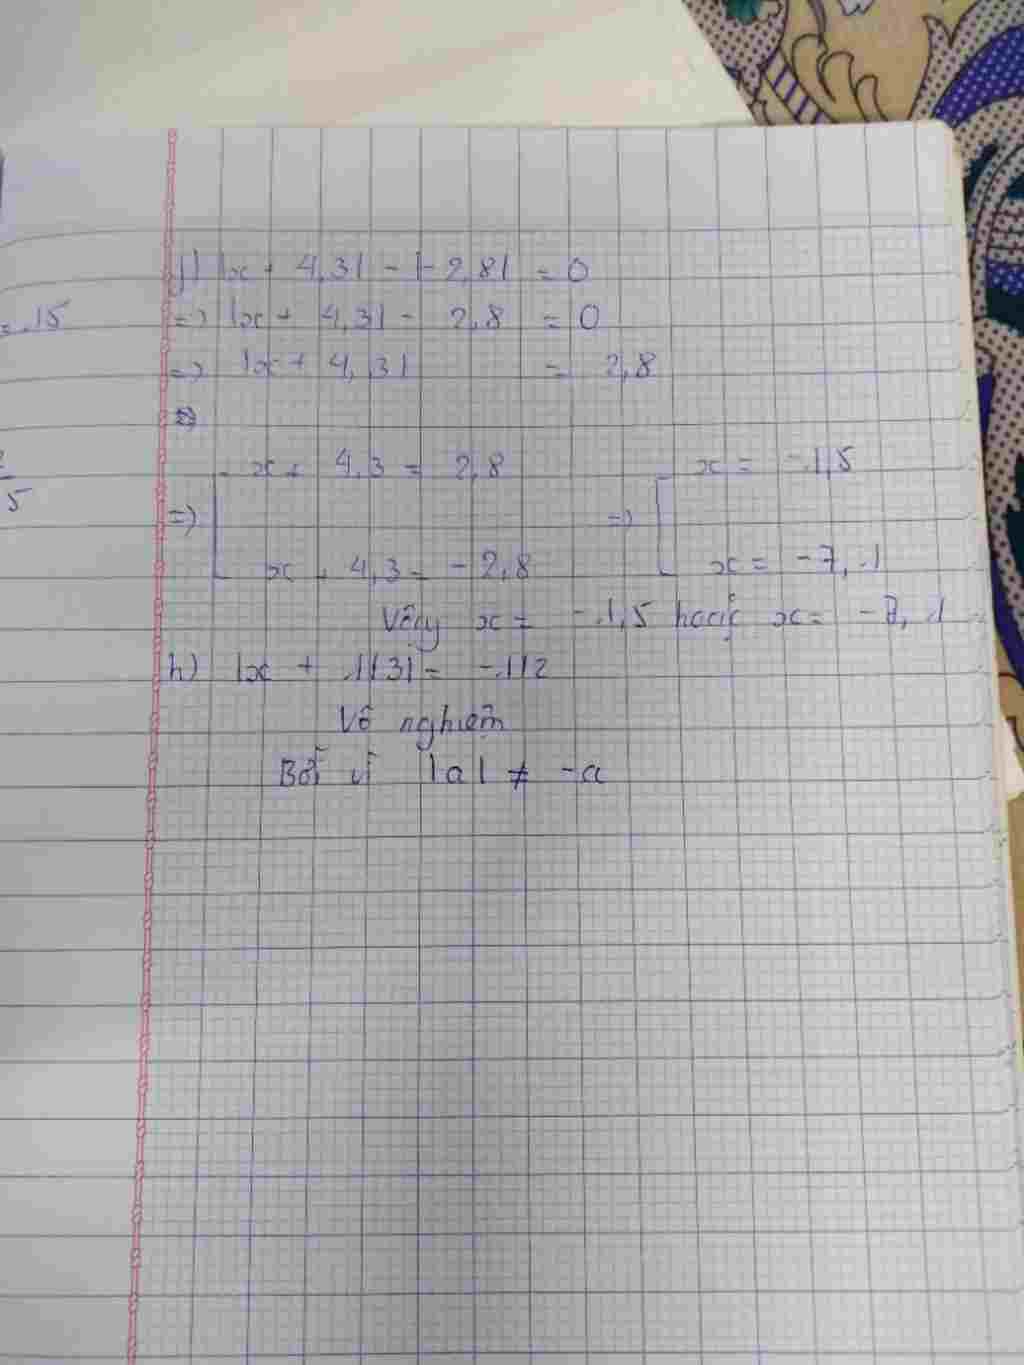 = 15
5
j) |x + 4,3| - |-2,8| = 0
=> |x + 4,3| - 2,8 = 0
=> |x + 4,3| = 2,8
x + 4,3 = 2,8 x = -1,5
=> =>
x + 4,3 = -2,8 x = -7,1
Vậy x = -1,5 hoặc x = -7,1
h) |x + 113| = -112
Vô nghiệm
Bởi vì |a| ≠ -a